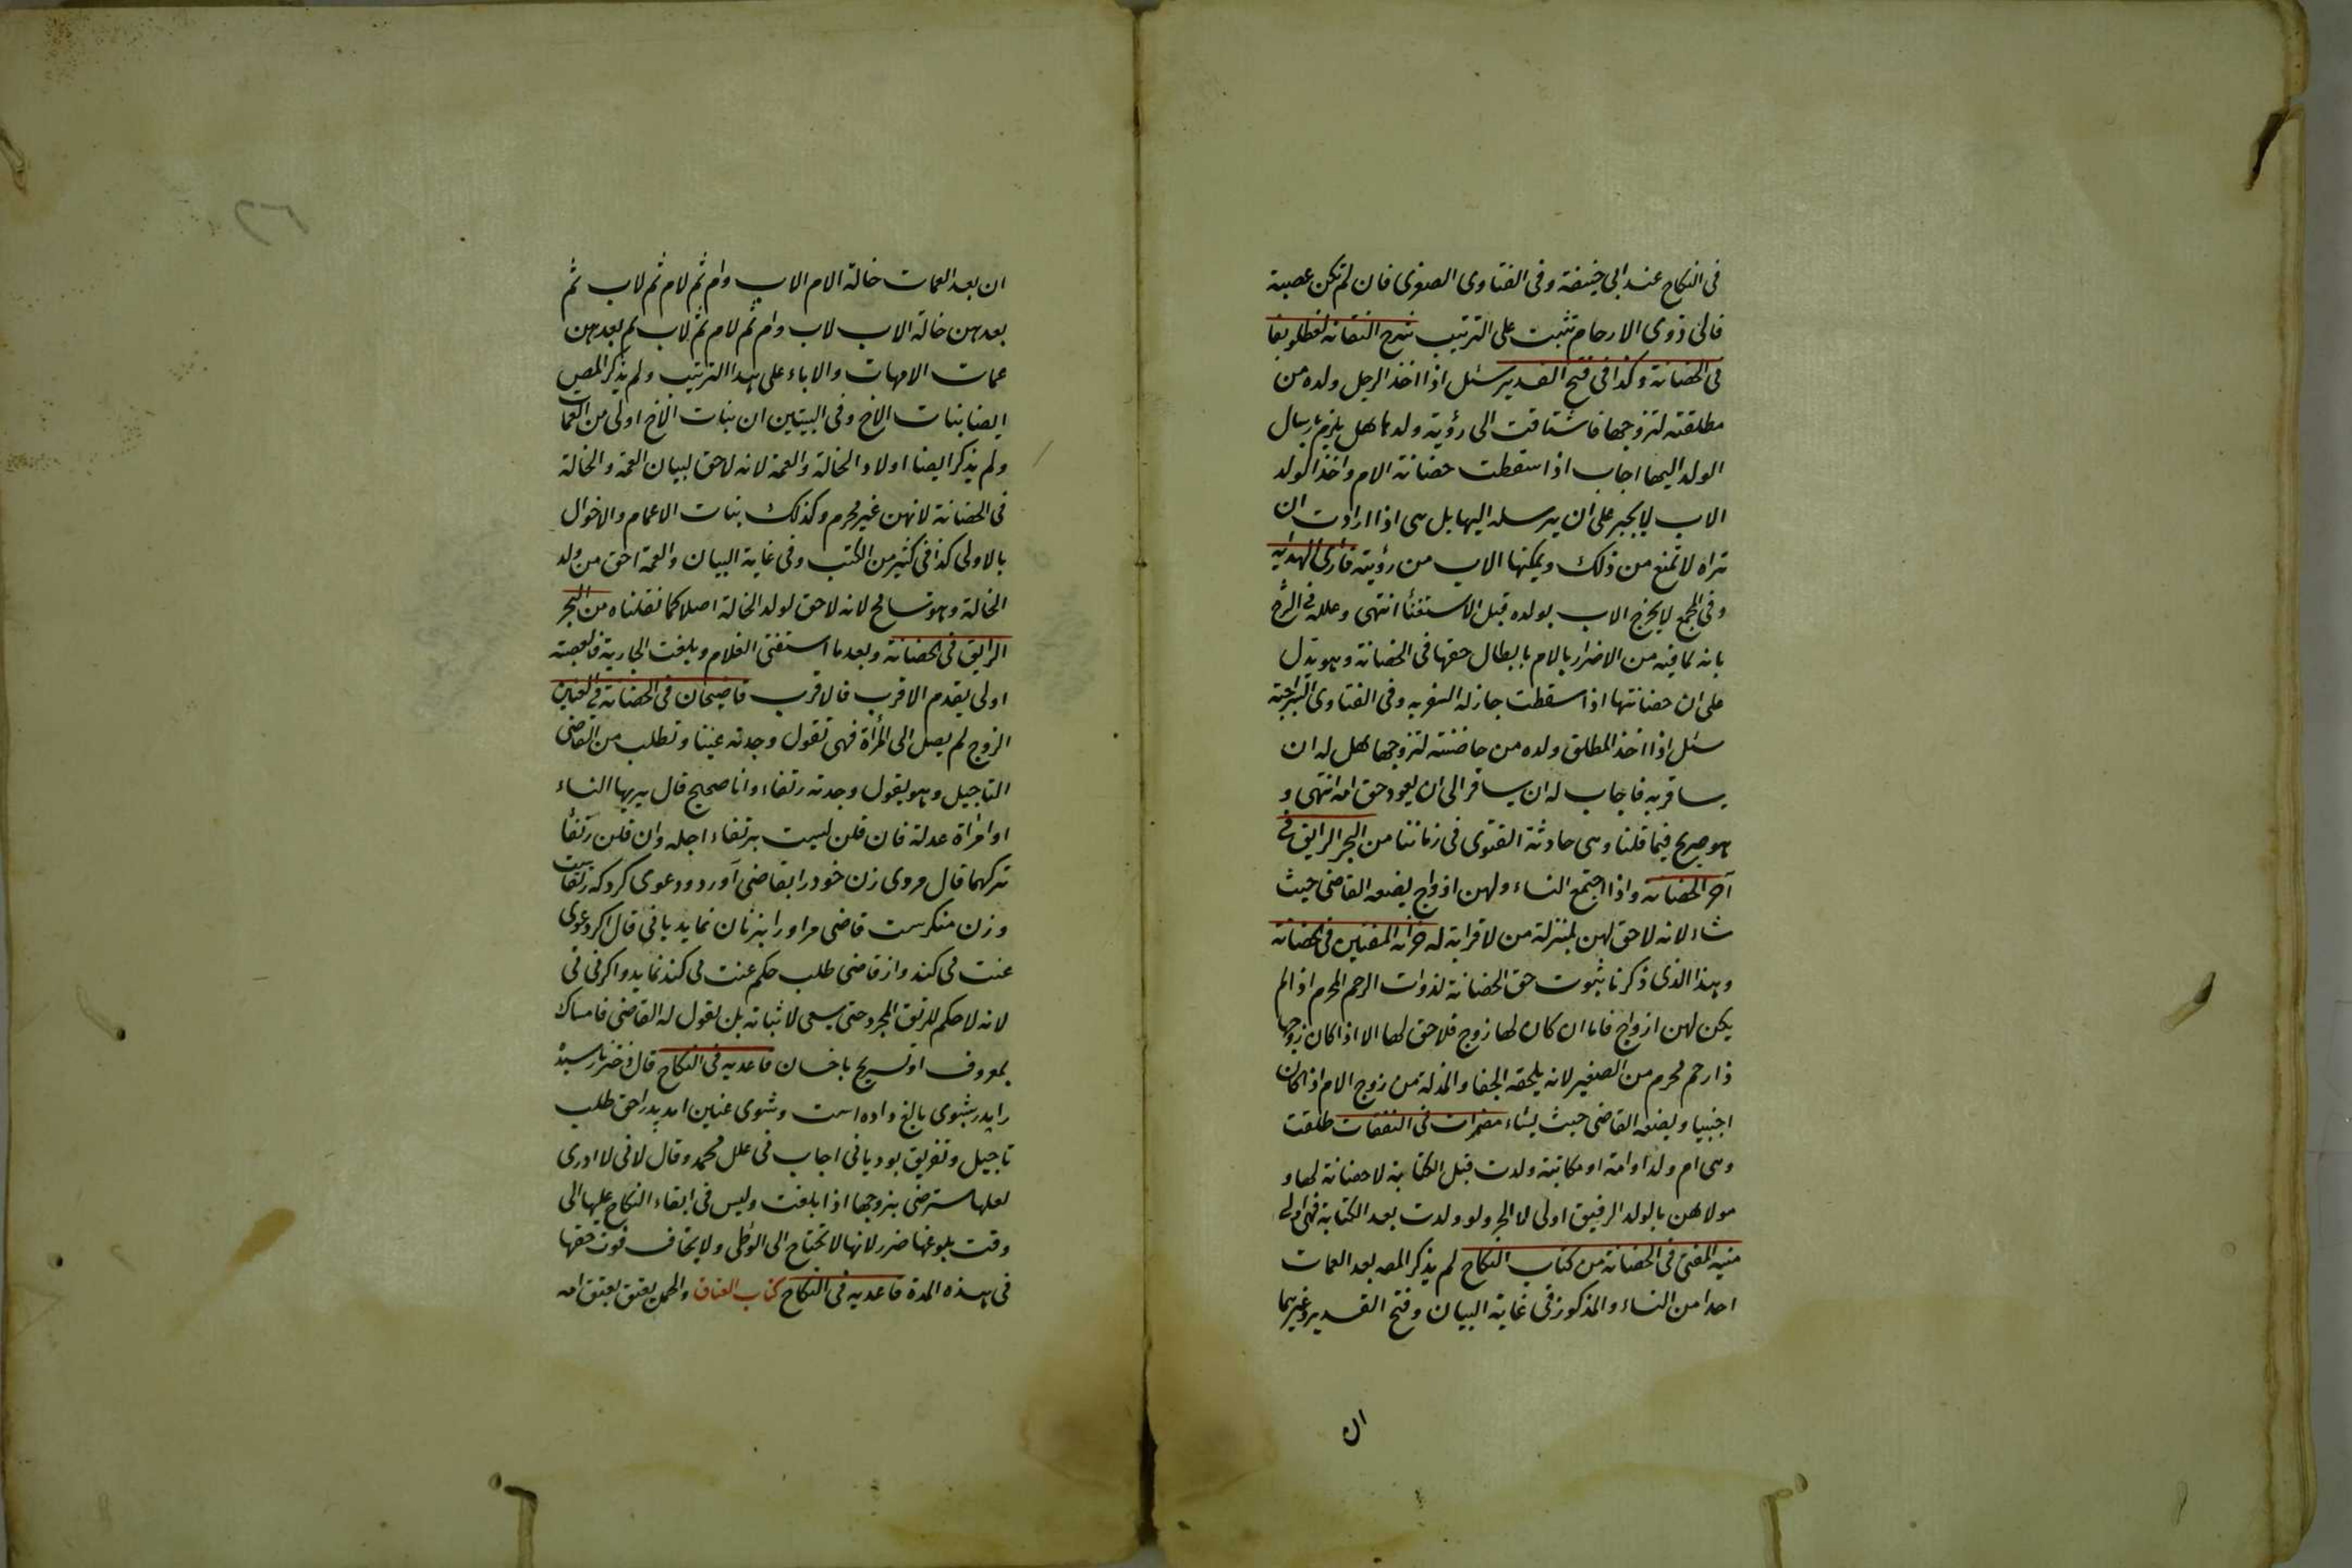 فى النكاح عند ابى حنيفة وفى الفتاوى الصغرى فان لم تكن عصبة
فالى ذوى الارحام تثبت على الترتيب شرح النقاية لقطلوبغا
فى الحضانة وكذا فى فتح القدير سئل اذا اخذ الرجل ولده من
مطلقته لتزوجها فاشتاقت الى رؤية ولدها هل يلزمه ارسال
الولد اليها اجاب اذا سقطت حضانة الام واخذ الولد
الاب لا يجبر على ان يرسله اليها بل هى اذا ارادت ان
تراه لا تمنع من ذلك ويمكنها الاب من رؤيته قارئ الهداية
وفى المجمع لا يخرج الاب بولده قبل الاستغناء انتهى وعلله فى الشرح
بانه لما فيه من الاضرار بالام بابطال حقها فى الحضانة وهو يدل
على ان حضانتها اذا سقطت جاز له السفر به وفى الفتاوى السراجية
سئل اذا اخذ المطلق ولده من حاضنته لتزوجها هل له ان
يسافر به فاجاب له ان يسافر الى ان يعود حق امه انتهى و
هو صريح فيما قلنا وهى حادثة الفتوى فى زماننا من البحر الرايق فى
آخر الحضانة واذا اجتمع النساء ولهن ازواج يضعه القاضى حيث
شاء لانه لا حق لهن بمنزلة من لا قرابة له خزانة المفتين فى الحضانة
وهذا الذى ذكرنا ثبوت حق الحضانة لذوات الرحم المحرم اذا لم
يكن لهن ازواج فاما ان كان لها زوج فلا حق لها الا اذا كان زوجها
ذا رحم محرم من الصغير لانه يلحقه الجفا والمذلة من زوج الام اذا كان
اجنبيا ويضعه القاضى حيث يشاء مضمرات فى النفقات طلقت
وهى ام ولد او امة او مكاتبة ولدت قبل الكتابة لا حضانة لها و
مولاهن بالولد الرقيق اولى لا الحر ولو ولدت بعد الكتابة فهى اولى
منية المفتى فى الحضانة من كتاب النكاح لم يذكر المصـ بعد العمات
احدا من النساء والمذكور فى غاية البيان وفتح القدير وغيرهما
ان
ان بعد العمات خالة الام لاب وام ثم لام ثم لاب ثم
بعدهن خالة الاب لاب وام ثم لام ثم لاب ثم بعدهن
عمات الامهات والاباء على هذا الترتيب ولم يذكر المصـ
ايضا بنات الاخ وفى التبيين ان بنات الاخ اولى من العمات
ولم يذكر ايضا اولاد الخالة والعمة لانه لا حق لبنات العمة والخالة
فى الحضانة لانهن غير محرم وكذلك بنات الاعمام والاخوال
بالاولى كذا فى كثير من الكتب وفى غاية البيان والعمة احق من ولد
الخالة وهو تسامح لانه لا حق لولد الخالة اصلا كما نقلناه من البحر
الرايق فى الحضانة وبعد ما استغنى الغلام وبلغت الجارية فالعصبة
اولى يقدم الاقرب فالاقرب قاضيخان فى الحضانة فى العنين
الزوج لم يصل الى المرأة فهى تقول وجدته عنينا وتطلب من القاضى
التاجيل وهو يقول وجدته رتقاء وانا صحيح قال يريها النساء
او امرأة عدلة فان قلن ليست برتقاء اجله وان قلن رتقاء
تركهما قال مروى زن خود را بقاضى آورد ودعوى كرد كه رتقاست
وزن منكرست قاضى مر او را بزنان نمايد يا نى قال اكر دعوى
عنت مى كند واز قاضى طلب حكم عنت مى كند نمايد واكر نى نى
لانه لا حكم للرتق المجرد حتى يسعى لاثباته بل يقول له القاضى فامساك
بمعروف او تسريح باحسان قاعديه فى النكاح قال دختر نارسيده
را پدر بشوى بالغ داده است وشوى عنين آمد پدر را حق طلب
تاجيل وتفريق بود يا نى اجاب فى علل محمد وقال لا نى لا ادرى
لعلها سترضى بزوجها اذا بلغت وليس فى ابقاء النكاح عليها الى
وقت بلوغها ضرر لانها لا تحتاج الى الوطى ولا يخاف فوت حقها
فى هذه المدة قاعديه فى النكاح كتاب العتاق والحمل يعتق بعتق امه